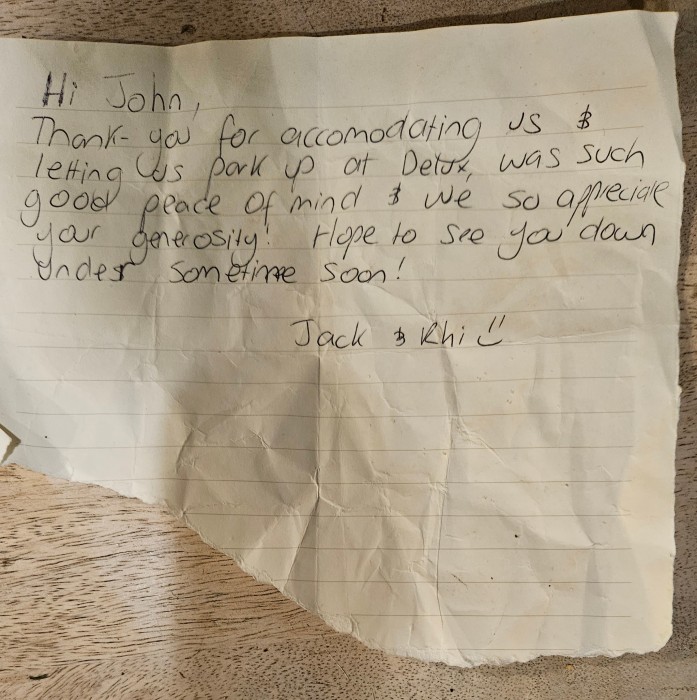 Hi John,
Thank-you for accomodating us &
letting us park up at Detox, was such
good peace of mind & we so appreciate
your generosity! Hope to see you down
under sometime soon!
Jack & Rhi